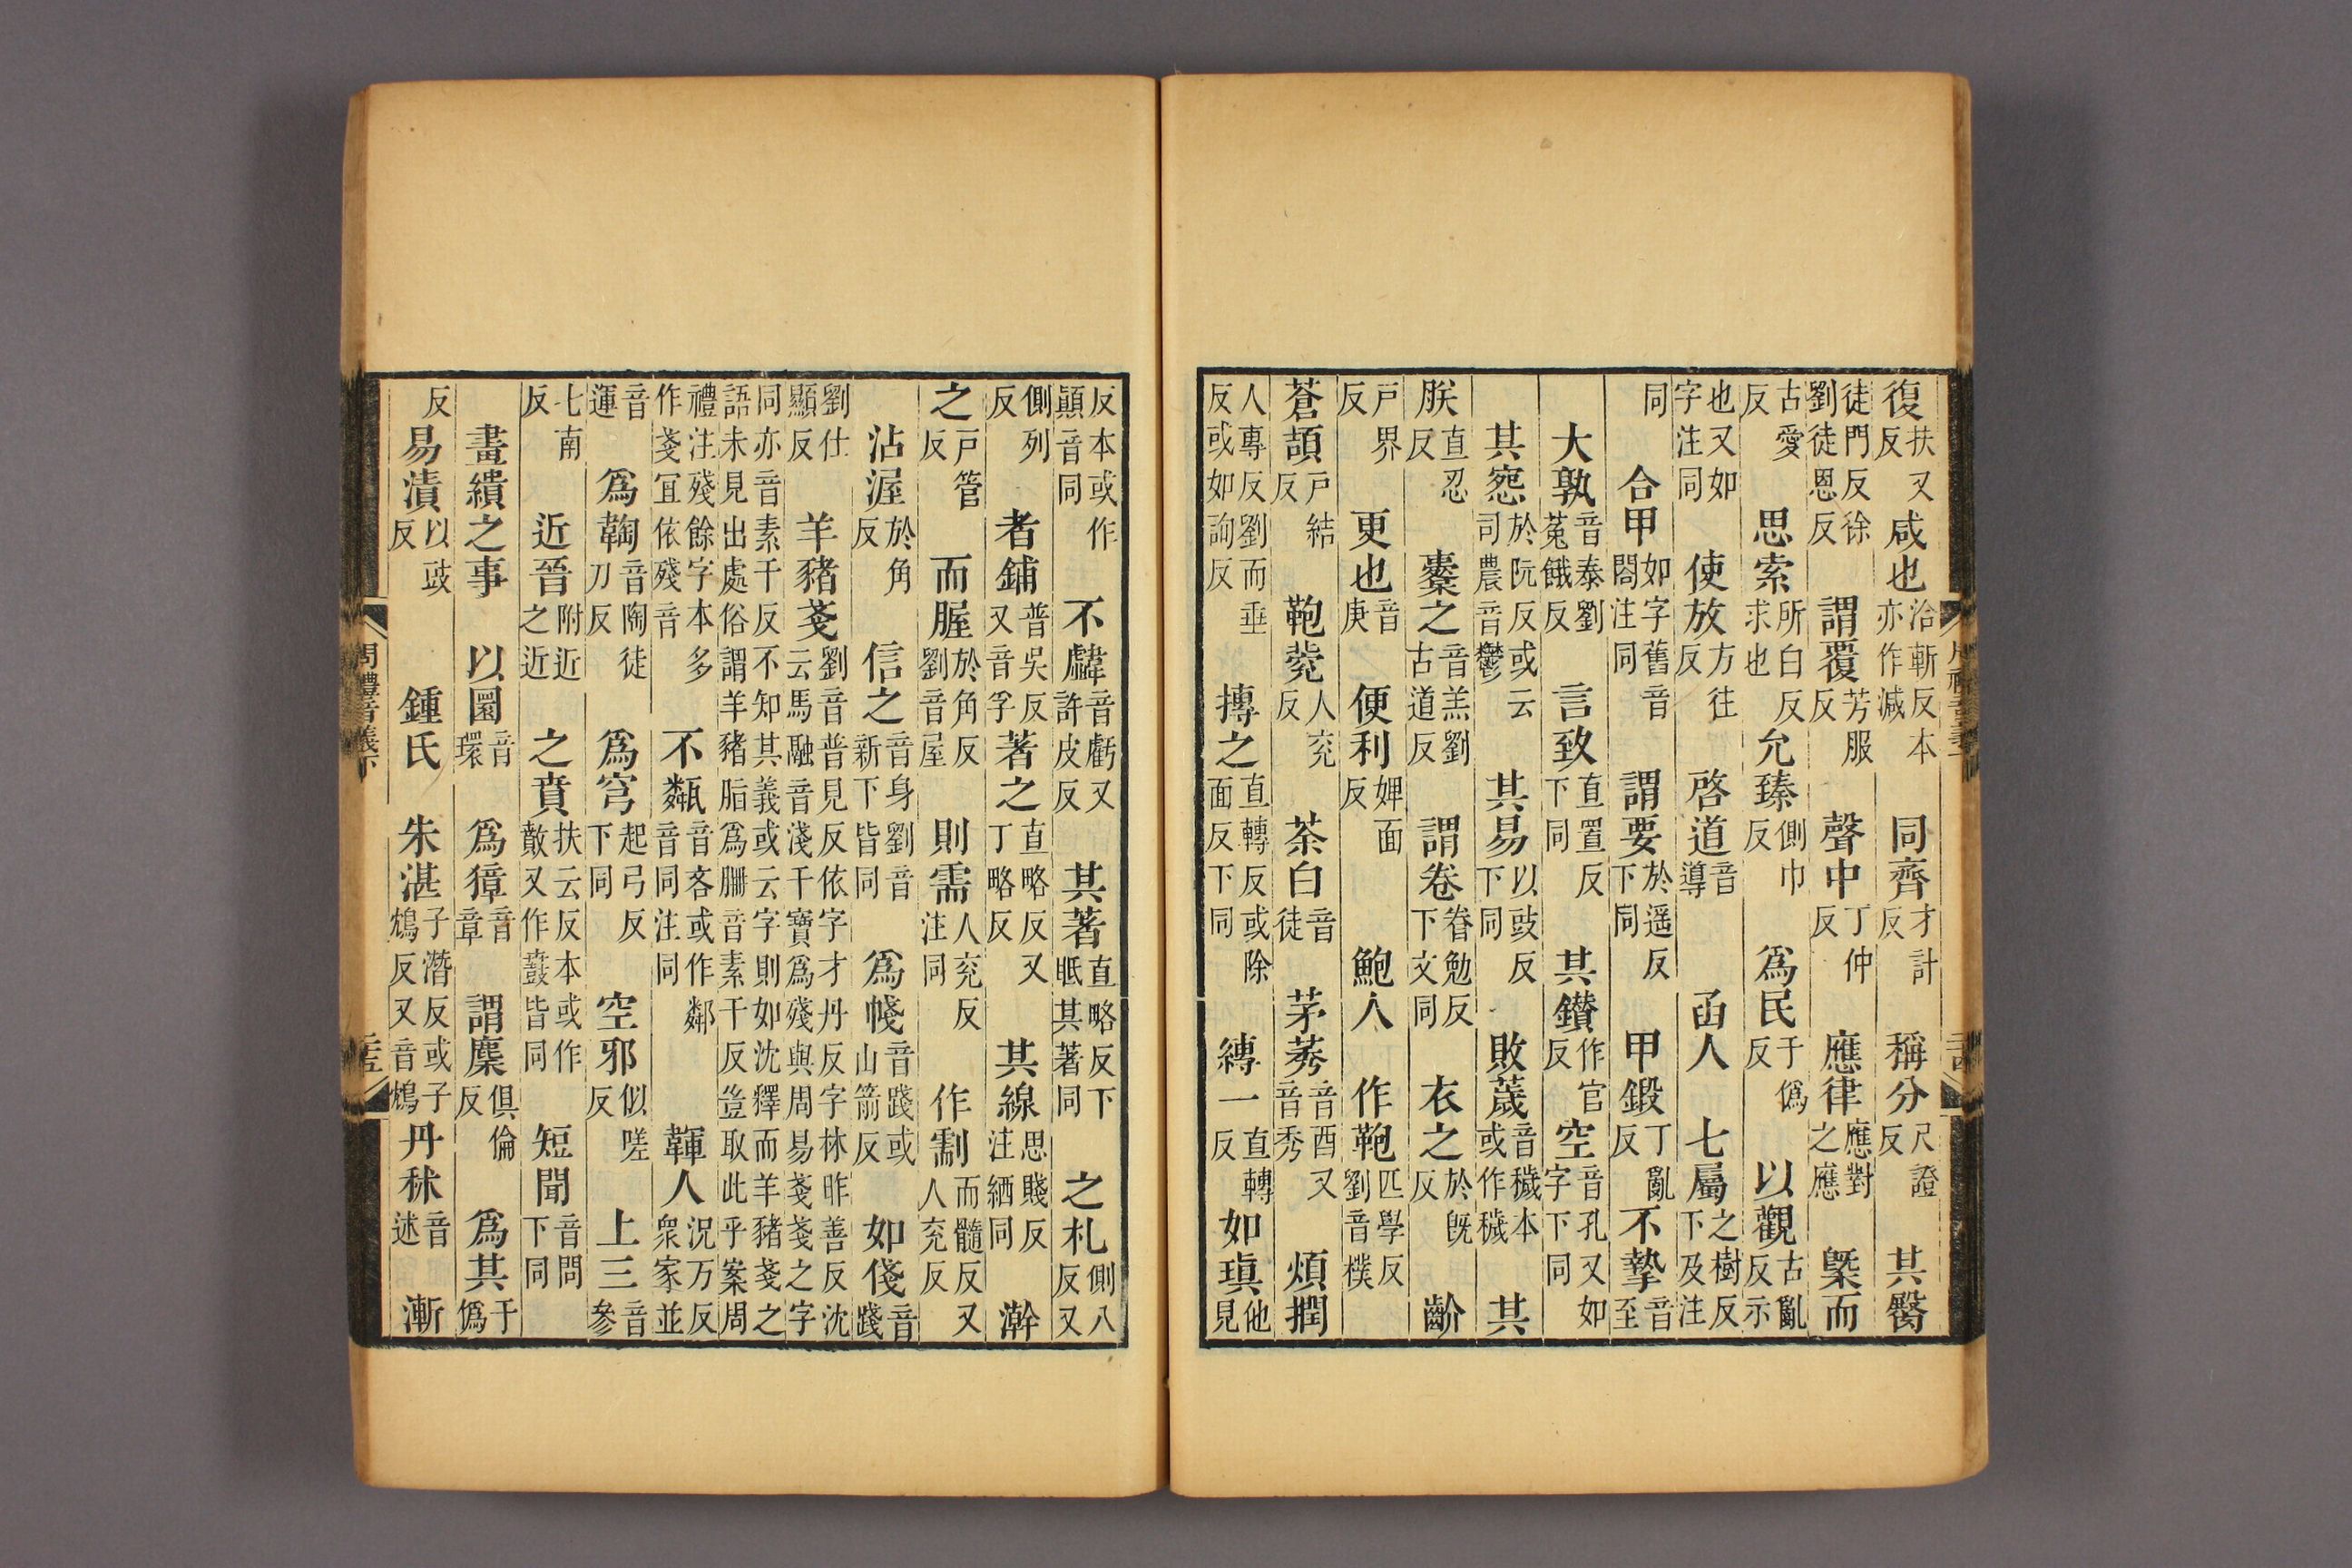 復扶又反咸也洽斬反本亦作減同齊才計反稱分尺證反其醫
徒門反徐劉徒恩反謂覆芳服反聲中丁仲反應律應對之應㮣而
古愛反思索所白反求也允臻側巾反爲民于僞反以觀古亂反示
也又如字注同使放方往反啓道音導函人七屬之樹反下及注
同合甲如字舊音閤注同謂要於遥反下同甲鍛丁亂反不摯音至
大孰音泰劉菟餓反言致直置反下同其鑽作官反空音孔又如字下同
其窓於阮反或云司農音鬱其易以豉反下同敗薉音穢本或作穢其
朕直忍反櫜之音羔劉古道反謂卷眷勉反下文同衣之於旣反齘
戸界反更也音庚便利婢面反鮑人作鞄匹學反劉音樸
蒼頡戸結反鞄㲉人兖反荼白音徒茅莠音酉又音秀煩撋
人專反劉而垂反或如詢反摶之直轉反或除面反下同縳一直轉反如瑱他見
反本或作顚音同不㿲音虧又許皮反其著直略反下眡其著同之札側八反又
側列反者鋪普吳反又音孚著之直略反又丁略反其線思賤反注綫同澣
之戸管反而腛於角反劉音屋則需人兖反注同作㓴而髓反又人充反
沾渥於角反信之音身劉音新下皆同爲帴音踐或山箭反如俴音踐
劉仕顯反羊豬戔劉音普見反依字才丹反字林昨善反沈云馬融音淺干寶爲殘與周易戔戔之字
同亦音素干反不知其義或云字則如沈釋而羊豬戔之語未見出處俗謂羊豬脂爲䏝音素干反豈取此乎案周
禮注殘餘字本多作戔冝依殘音不甐音吝或作鄰音同注同韗人況万反衆家並
音運爲鞠音陶徒刀反爲穹起弓反下同空邪似嗟反上三音參
七南反近晉附近之近之賁扶云反本或作蕡又作鼖皆同短聞音問下同
畫繢之事以圜音環爲獐音章謂麇俱倫反爲其于僞
反易漬以豉反鍾氏朱湛子潛反或子鴆反又音鴆丹秫音述漸
周禮音義下
二十五